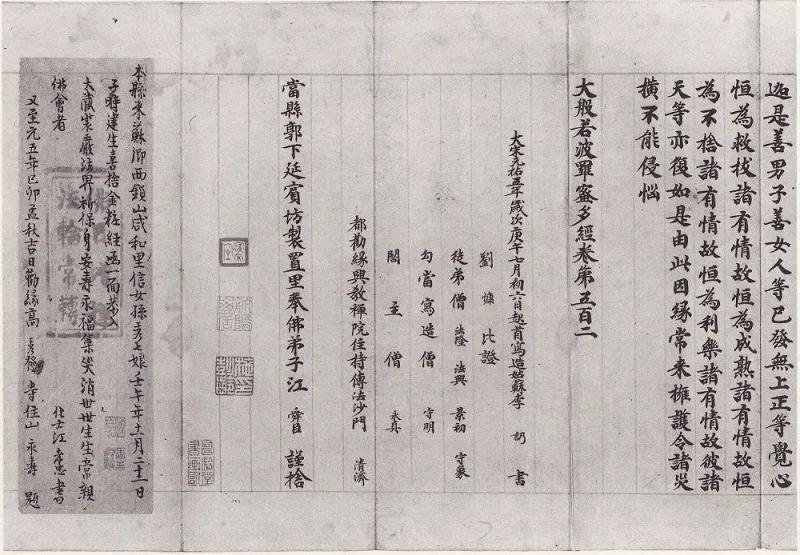 迦是善男子善女人等已發無上正等覺心
恒為救拔諸有情故恒為成熟諸有情故恒
為不捨諸有情故恒為利樂諸有情故彼諸
天等亦復如是由此因緣常來擁護令諸災
橫不能侵惱
大般若波羅蜜多經卷第五百二
大宋元祐五年歲次庚午七月初六日起首寫造姑蘇李 書
劉 比證
徒弟僧 法隆 法興 景初 守象
勾當寫造僧 守明
閣主僧 永真
都勸緣興教禪院住持傳法沙門 清濟
當縣郭下延賓坊製置里奉佛弟子江 舜臣 謹捨
本縣東蘇鄉西鎖山咸和里信女孫彥七娘壬午年十一月二十一日
子時建生喜捨金粧經函一面恭入
大藏裝嚴法界祈保身安壽永福集災消世世生生常親
佛會者 化士江 書
又至元五年己卯孟秋吉日勸緣高 住山永壽 題
法輪常轉